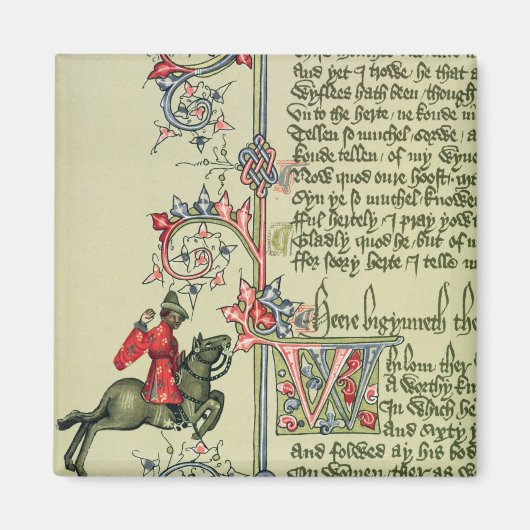 And yet I trowe / he that a
Wyflees hath been / though
Vn to the herte / ne koude in
Tellen so muchel / sorwe / a
koude tellen / of my wyue
Now quod oure hoost /
Syn ye so muchel knowen
fful hertely / I pray yow
Gladly quod he / but of
ffor soory herte / I telle
Heere bigynneth the
Whilom ther
A worthy kn
In which he
And sixty y
and folwed ay his bod
On wommen / ther as w